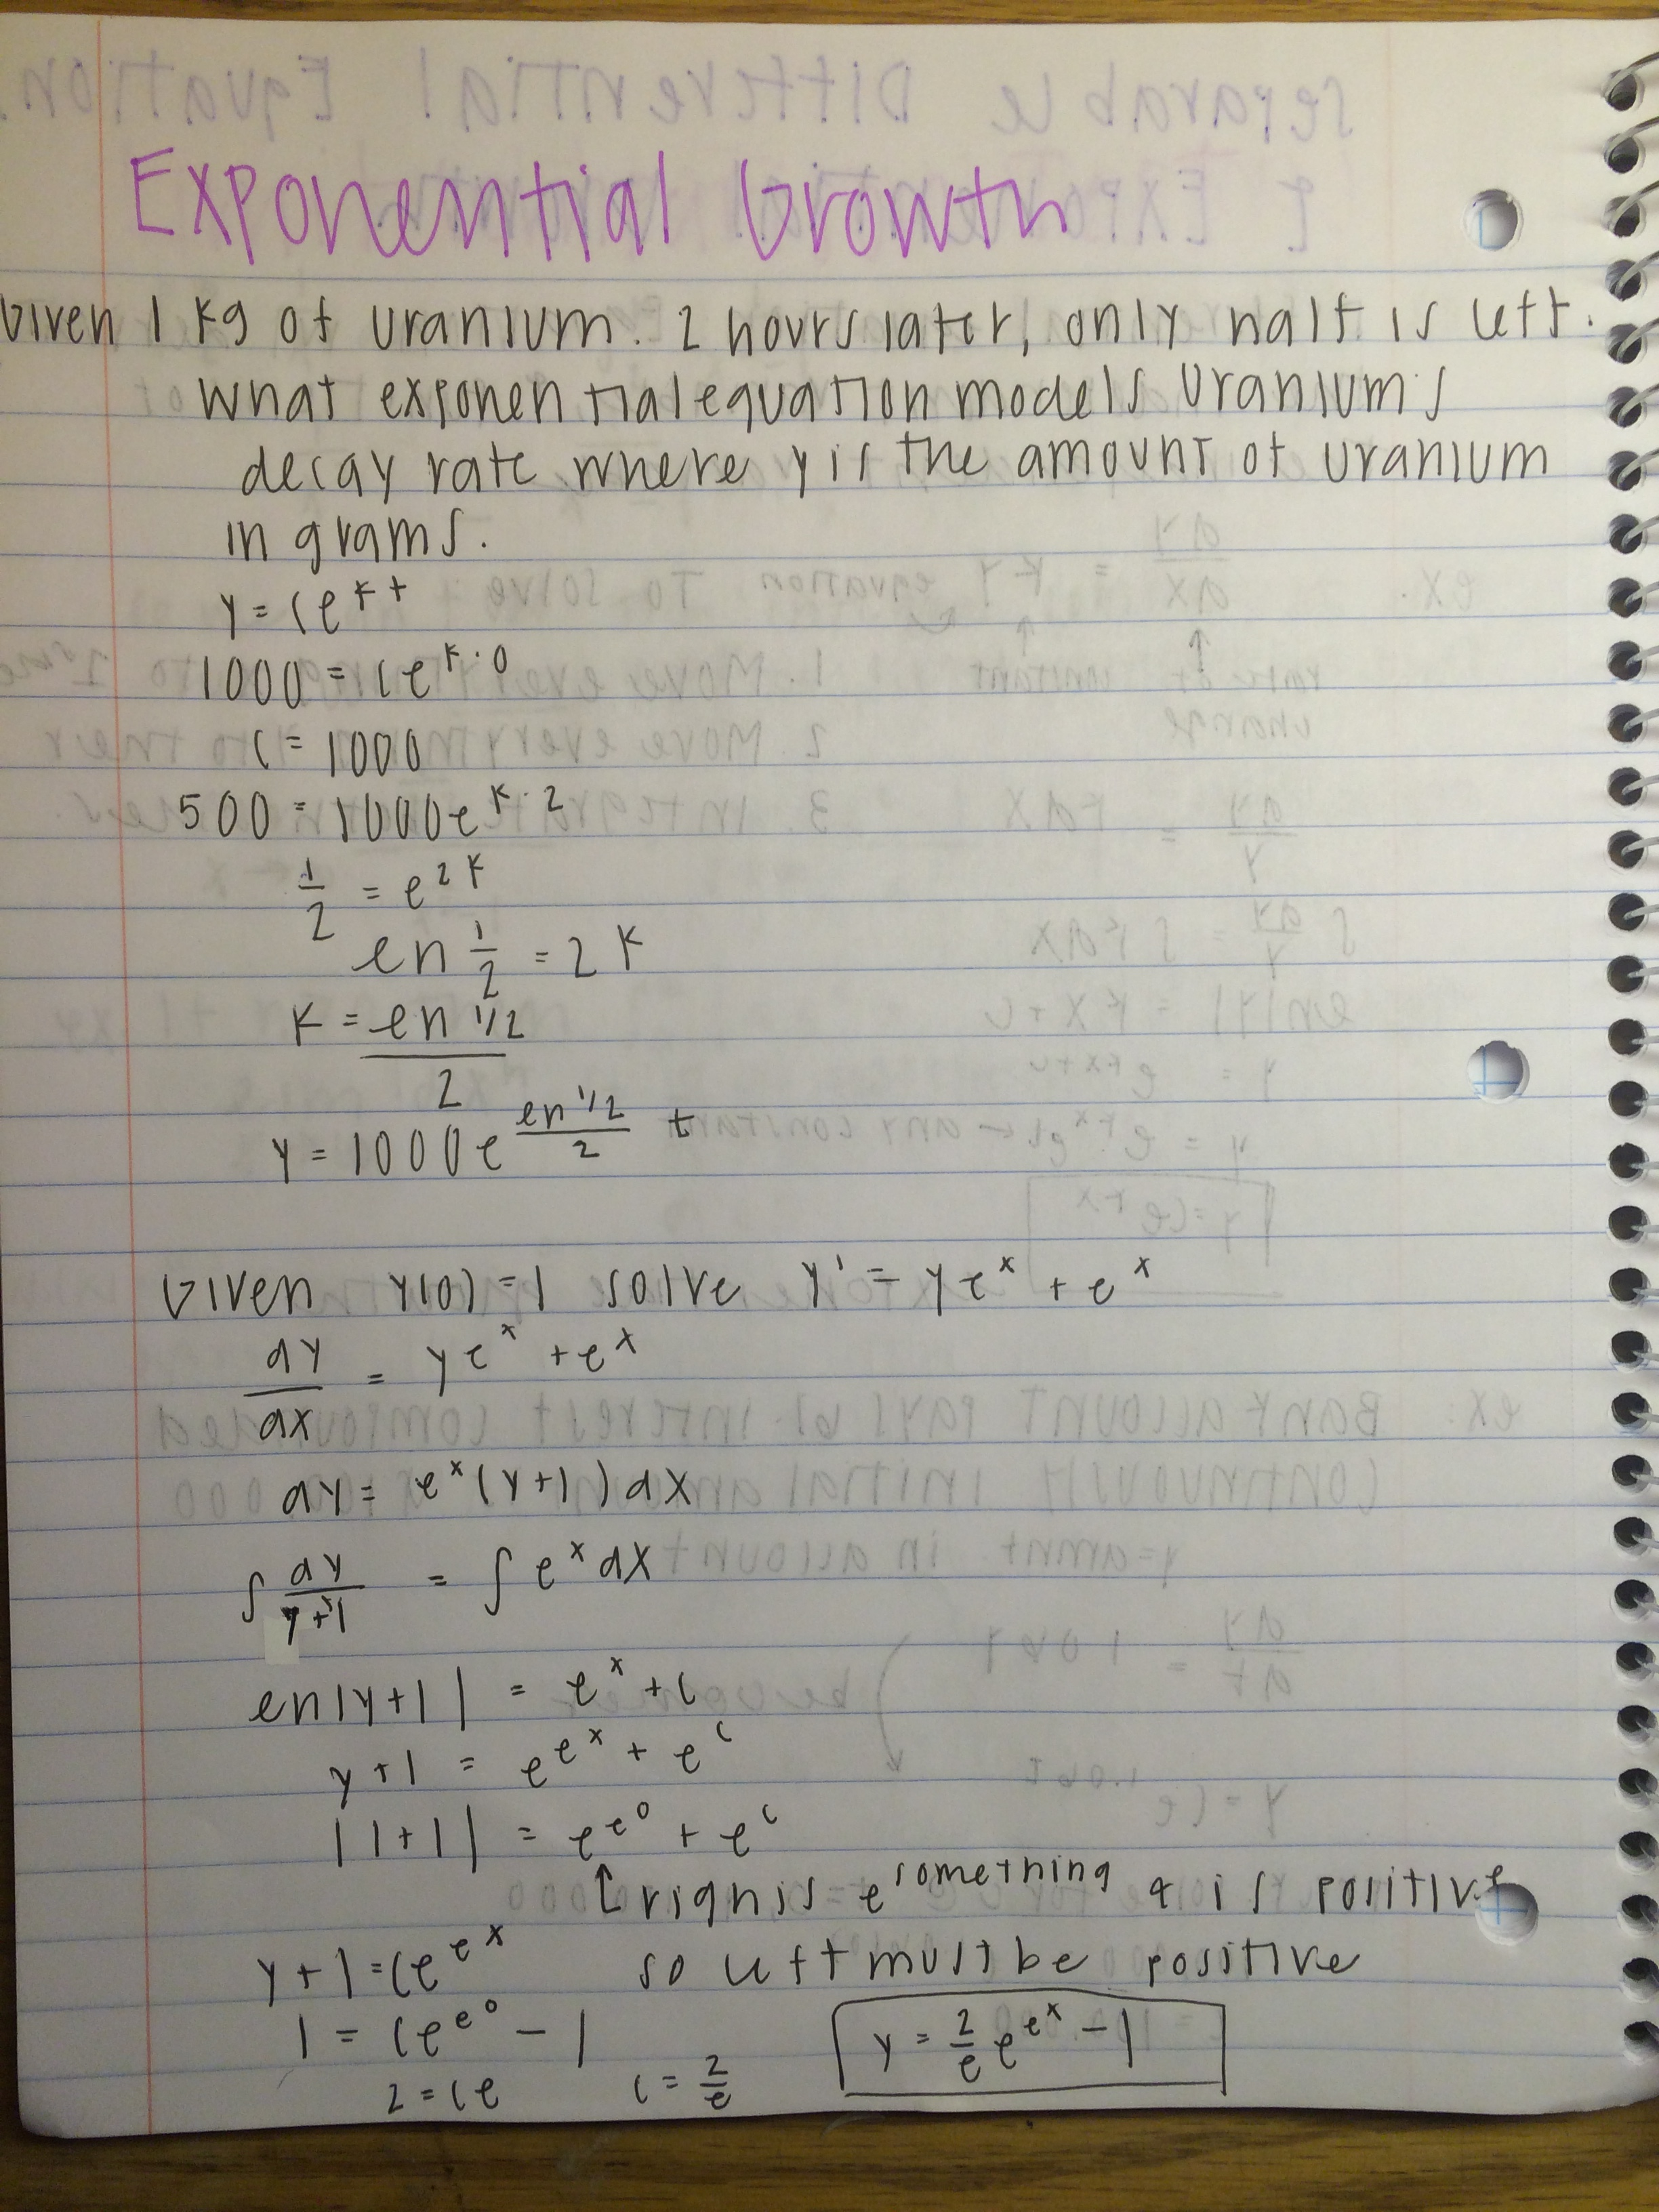 Exponential Growth
Given 1 kg of uranium. 2 hours later, only half is left.
What exponential equation models Uranium's
decay rate where y is the amount of uranium
in grams.
y = Ce^kt
1000 = Ce^k·0
C = 1000
500 = 1000e^k·2
1/2 = e^2k
ln 1/2 = 2k
k = ln 1/2 / 2
y = 1000e^(ln 1/2 / 2) t
Given y(0) = 1 solve y' = ye^x + e^x
dy/dx = ye^x + e^x
dy = e^x(y+1)dx
∫ dy/y+1 = ∫ e^x dx
ln|y+1| = e^x + C
y+1 = e^e^x + e^C
|1+1| = e^e^0 + e^C
↑ right is e^something & is positive
y+1 = Ce^e^x so left must be positive
1 = Ce^e^0 - 1
2 = Ce C = 2/e y = 2/e e^e^x - 1